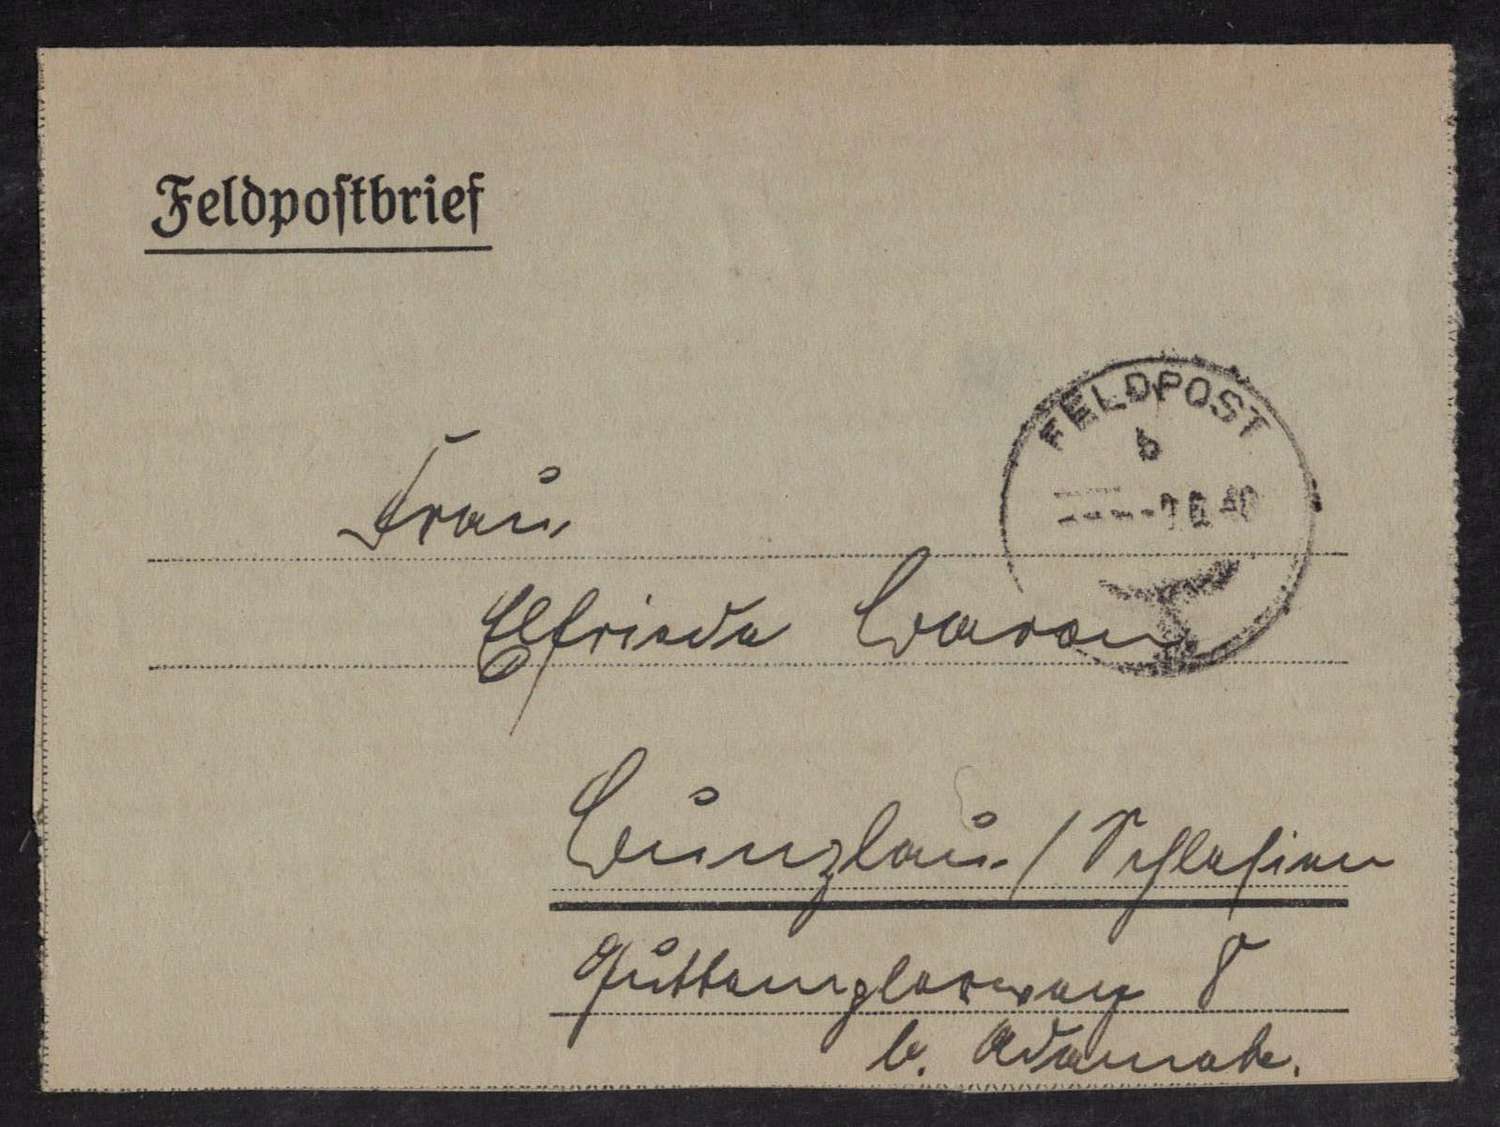 Feldpostbrief
FELDPOST
b
Frau
Elfriede Baron
Bunzlau / Schlesien
Guttemplerweg 8
b. Adamek.